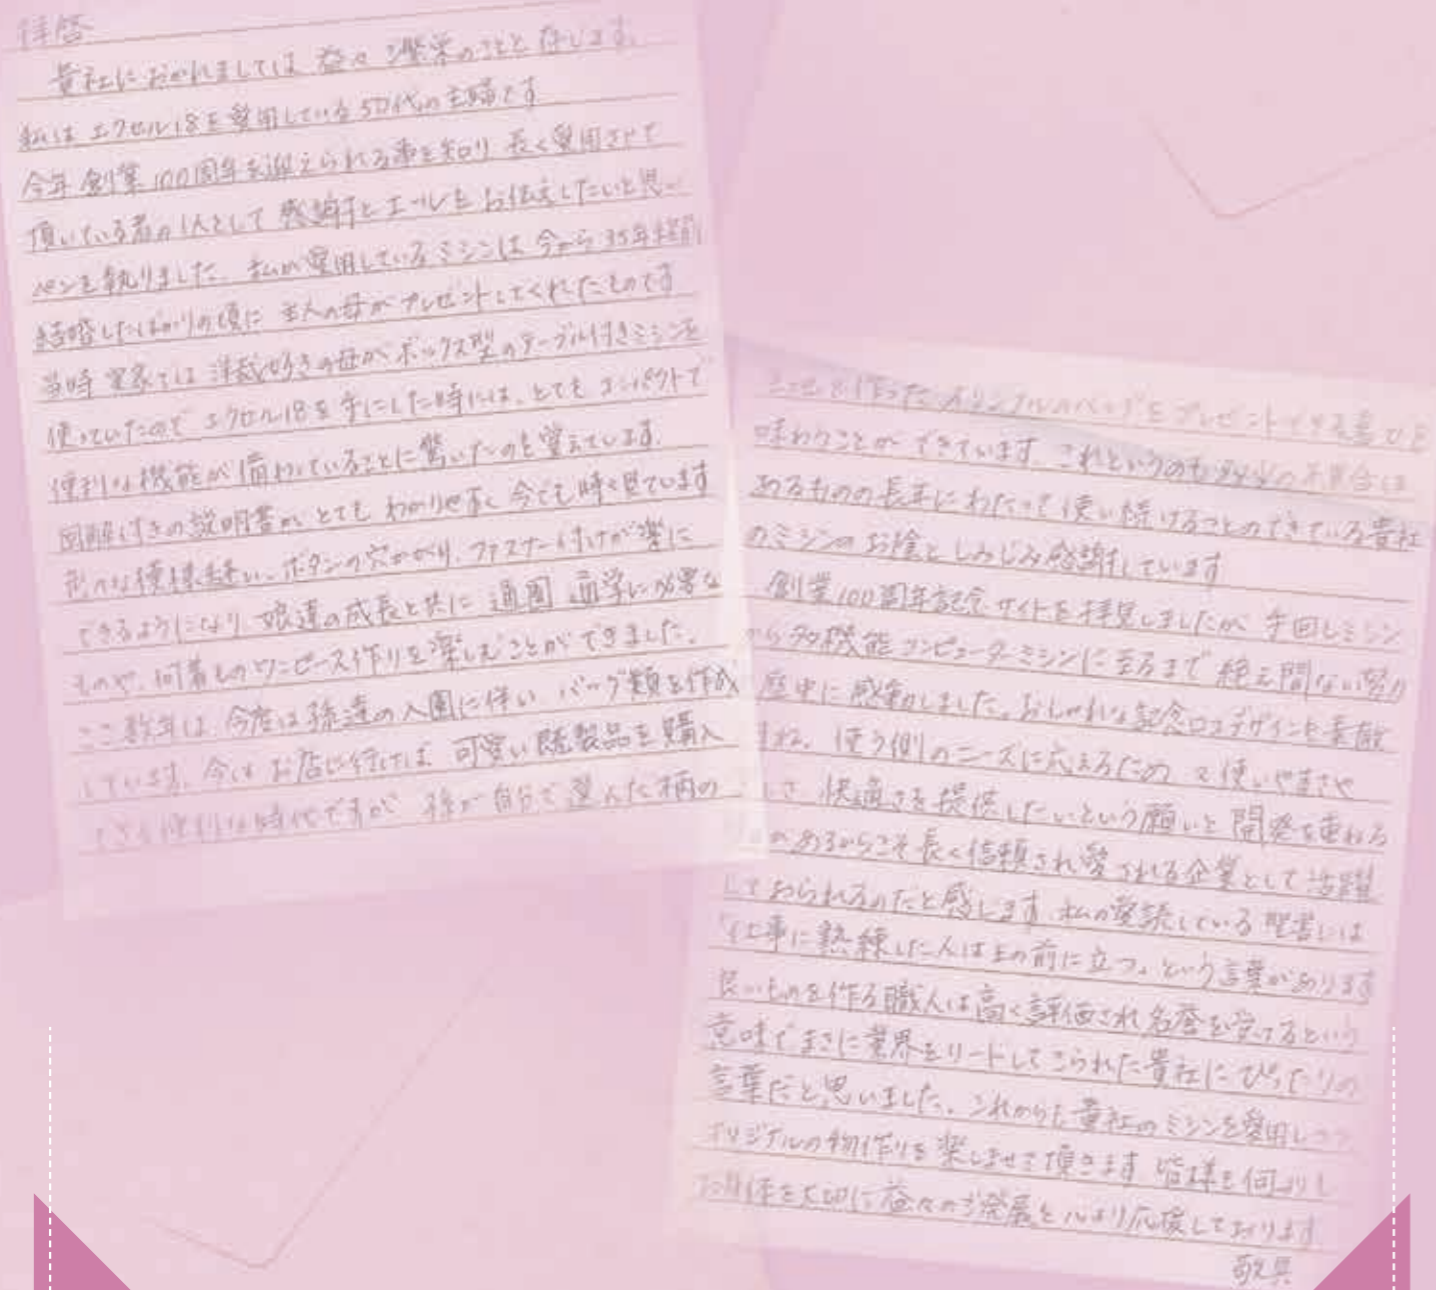 拝啓
貴社におかれましては 益々ご繁栄のことと存じます。
私は エクセル18を愛用している50代の主婦です
今年 創業100周年を迎えられる事を知り 長く愛用させて
頂いている者の1人として 感謝とエールをお伝えしたいと思い
ペンを執りました。私が愛用しているミシンは 今から35年程前
結婚したばかりの頃に 主人の母がプレゼントしてくれたものです
当時 実家では 洋裁好きの母がボックス型のテーブル付きミシンを
使っていたので エクセル18を手にした時には、とても コンパクトで
便利な機能が備わっていることに驚いたのを覚えています。
図解付きの説明書が とても わかりやすく 今でも時々見ています
色々な模様縫い、ボタンの穴かがり、ファスナー付けが楽に
できるようになり 娘達の成長と共に 通園 通学に必要な
ものや、何着ものワンピース作りを楽しむことができました。
ここ数年は 今度は孫達の入園に伴い バッグ類を作成
しています。今は お店に行けば 可愛い既製品を購入
できる便利な時代ですが 孫が自分で選んだ柄の
を作った オリジナルのバッグをプレゼントできる喜びを
味わうことが できています。これというのも 多少の不具合は
あるものの長年にわたって使い続けることのできている貴社
のミシンのお陰としみじみ感謝しています
創業100周年記念サイトを拝見しましたが 手回しミシン
から多機能コンピューターミシンに至るまで 絶え間ない努力
歴史に感動しました。おしゃれな記念ロゴデザインも素敵
すね。使う側のニーズに応えるため 使いやすさや
しさ 快適さを提供したいという願いと 開発を重ねる
があるからこそ 長く信頼され愛される企業として活躍
しておられるのだと感じます。私の愛読している聖書には
「仕事に熟練した人は王の前に立つ」という言葉があります
良いものを作る職人は高く評価され名誉を受けるという
意味で まさに業界をリードしてこられた貴社にぴったりの
言葉だと思いました。これからも 貴社のミシンを愛用しつつ
オリジナルの物作りを楽しませて頂きます 皆様も何よりも
お身体を大切に 益々のご発展を心より応援しております
敬具